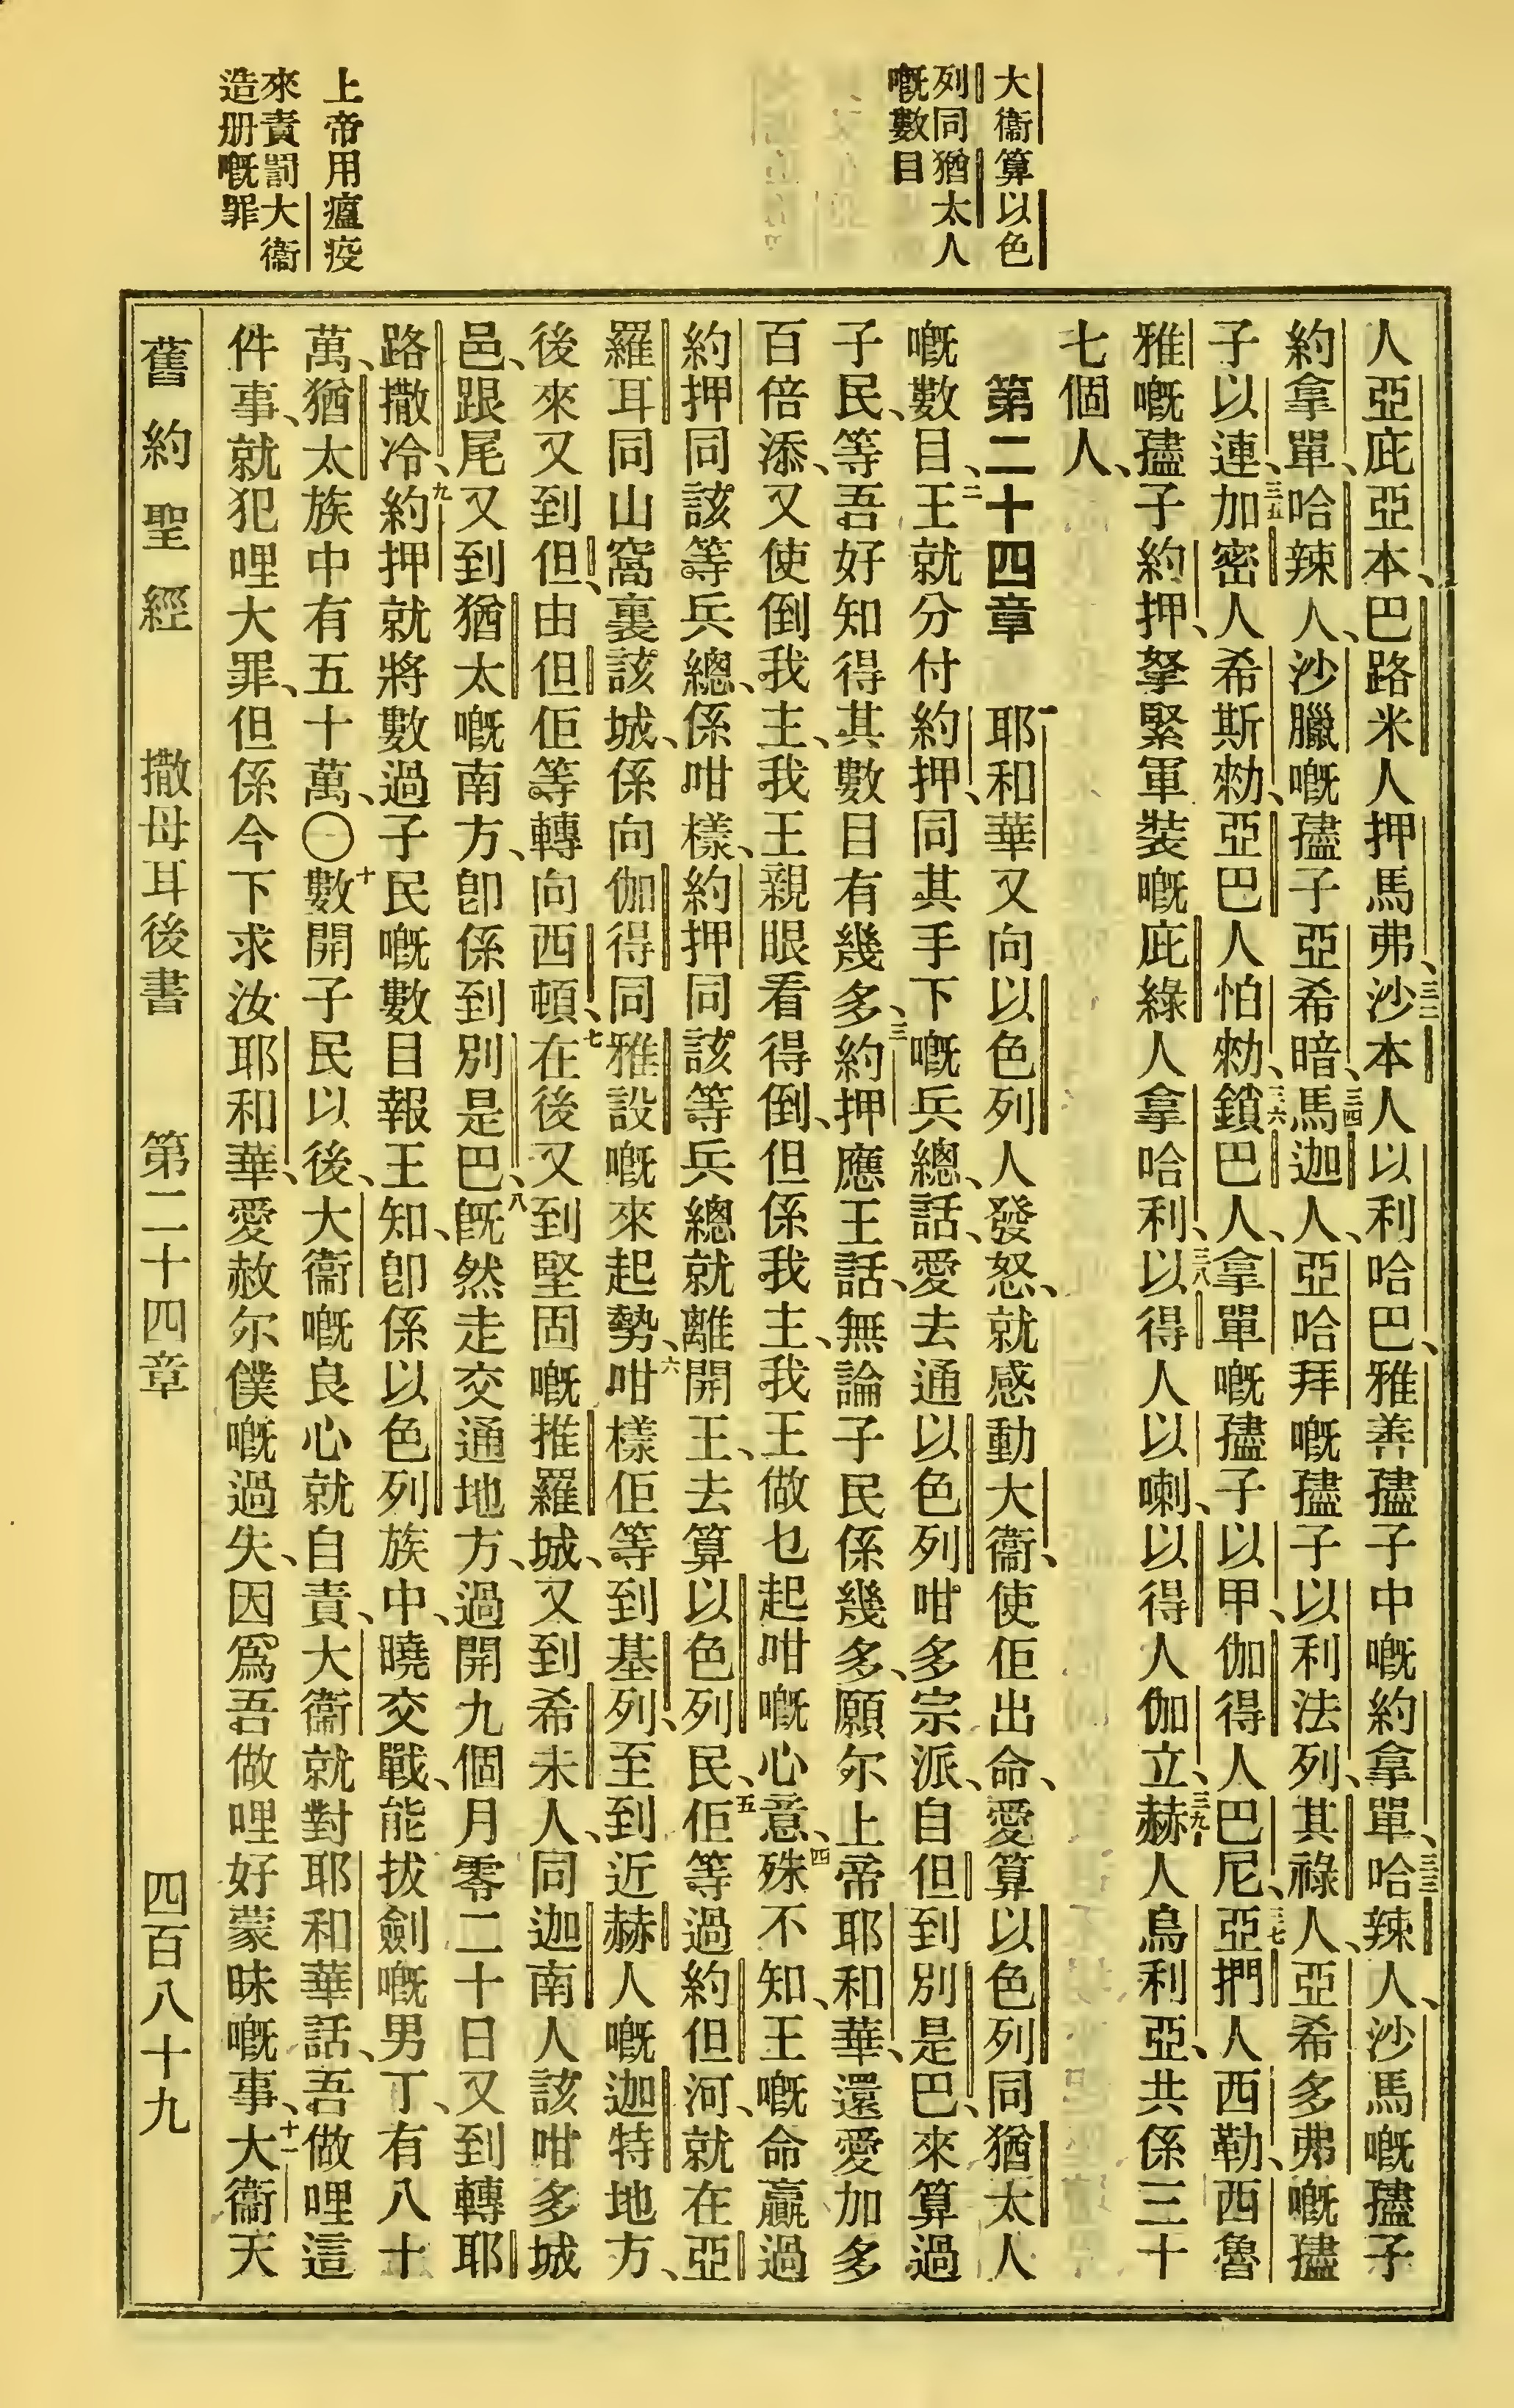 大衞算以色
列同猶太人
嘅數目
上帝用瘟疫
來責罰大衞
造册嘅罪
人亞庇亞本、巴路米人押馬弗、三二沙本人以利哈巴、雅善孻子中嘅約拿單、三三哈辣人、沙馬嘅孻子
約拿單、哈辣人、沙臘嘅孻子亞希暗、三四馬迦人、亞哈拜嘅孻子以利法列、其祿人、亞希多弗嘅孻
子以連、三五加密人希斯勑、亞巴人怕勑、三六鎖巴人、拿單嘅孻子以甲、伽得人巴尼、三七亞捫人西勒、西魯
雅嘅孻子約押、拏緊軍裝嘅庇綠人拿哈利、三八以得人以喇、以得人伽立、三九赫人烏利亞、共係三十
七個人、
第二十四章 一耶和華又向以色列人發怒、就感動大衞、使佢出命、愛算以色列同猶太人
嘅數目、二王就分付約押、同其手下嘅兵總、話、愛去通以色列咁多宗派、自但到別是巴、來算過
子民、等吾好知得其數目有幾多、三約押應王話、無論子民係幾多、願尔上帝耶和華、還愛加多
百倍添、又使倒我主、我王親眼看得倒、但係我主、我王做乜起咁嘅心意、四殊不知、王嘅命贏過
約押同該等兵總、係咁樣、約押同該等兵總就離開王、去算以色列民、五佢等過約但河、就在亞
羅耳同山窩裏該城、係向伽得同雅設嘅來起勢、六咁樣佢等到基列、至到近赫人嘅迦特地方、
後來又到但、由但佢等轉向西頓、七在後又到堅固嘅推羅城、又到希未人、同迦南人該咁多城
邑、跟尾又到猶太嘅南方、卽係到別是巴、八旣然走交通地方、過開九個月零二十日又到轉耶
路撒冷、九約押就將數過子民嘅數目報王知、卽係以色列族中、曉交戰、能拔劍嘅男丁、有八十
萬、猶太族中有五十萬、〇十數開子民以後、大衞嘅良心就自責、大衞就對耶和華話、吾做哩這
件事、就犯哩大罪、但係今下求汝耶和華、愛赦尔僕嘅過失、因爲吾做哩好蒙昧嘅事、十一大衞天
舊約聖經 撒母耳後書 第二十四章 四百八十九